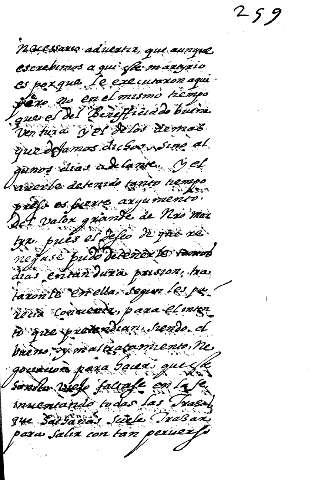 259
necessario advertir, que aunque
escrebimos aqui este martyrio
es porque le executaron aqui
pero no en el mismo tiempo
que el del Beneficiado buena
Ventura y el de los demas
que dejamos dichos, sino al
gunos dias adelante. Y el
averle detenido tanto tiempo
preso es fuerte argumento
del valor grande de Nro mar
tyr, pues el deseo de que re
negase pudo detenerle tantos
dias en tan dura prision, tra
taronle en ella, segun les pa
recia convenir, para el inten
to que pretendian, siendo el
bueno, y mal tratamiento, Ne
gociacion para hacer que este
faltase en la fe
inventando todas las traças
que Satanas suele trabar
para salir con tan perverso